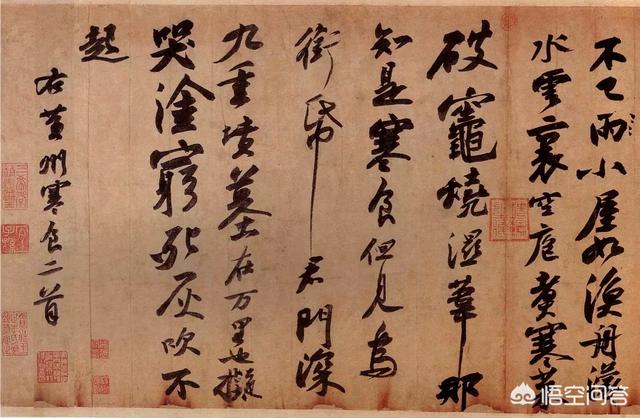 不已雨小屋如漁舟濛
水雲裏空庖煮寒菜
破竈燒濕葦那
知是寒食但見烏
銜帋君門深
九重墳墓在万里也擬
哭塗窮死灰吹不
起
右黃州寒食二首
悟空问答